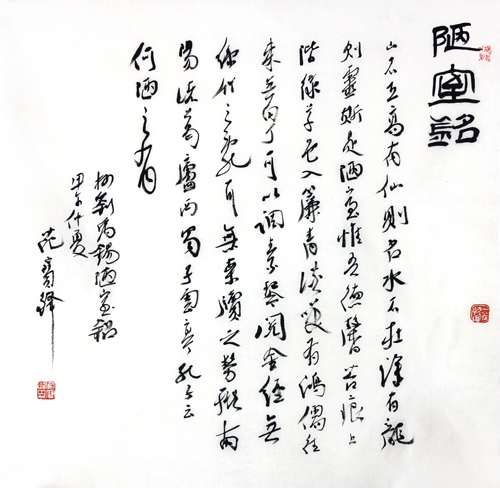 陋室銘
山不在高有仙則名水不在深有龍
則靈斯是陋室惟吾德馨苔痕上
階綠草色入簾青談笑有鴻儒往
來無白丁可以調素琴閱金經無
絲竹之亂耳無案牘之勞形南
陽諸葛廬西蜀子雲亭孔子云
何陋之有
劉禹錫陋室銘
甲午仲夏
范